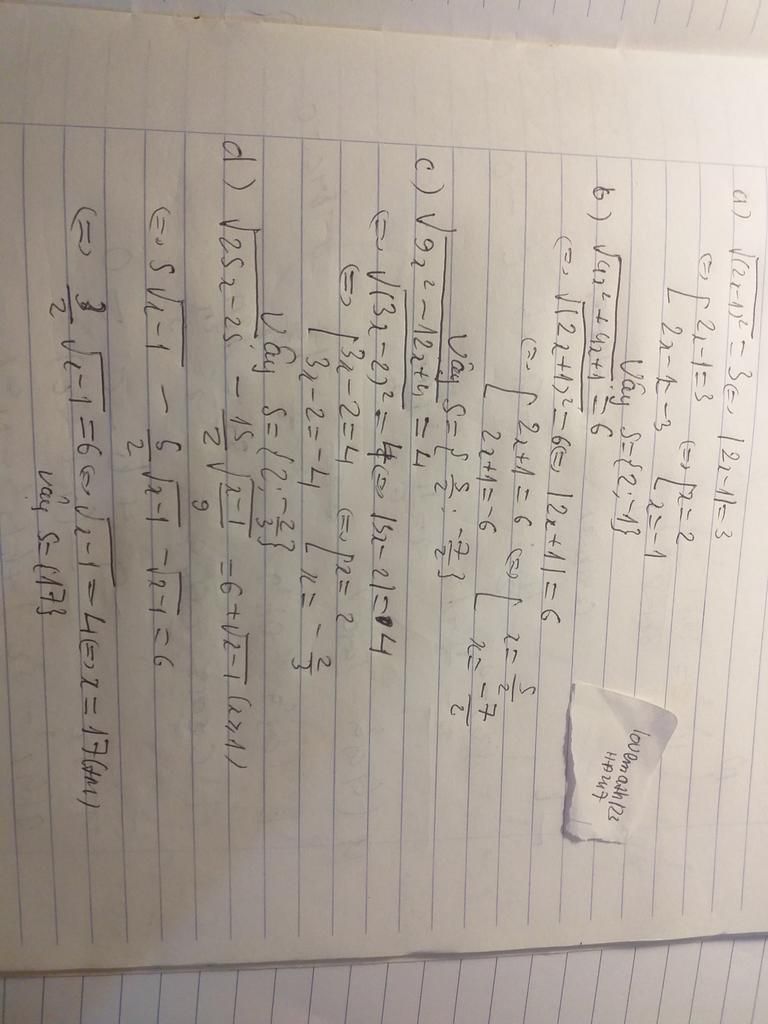 a) √(2x-1)² = 3 ⇔ |2x-1| = 3
⇔ [ 2x-1=3
2x-1=-3 ⇔ [ x=2
x=-1
Vậy S={2;-1}
b) √4x²+4x+1 = 6
⇔ √(2x+1)² = 6 ⇔ |2x+1| = 6
⇔ [ 2x+1=6
2x+1=-6 ⇔ [ x=5/2
x=-7/2
Vậy S={5/2; -7/2}
c) √9x²-12x+4 = 4
⇔ √(3x-2)² = 4 ⇔ |3x-2| = 4
⇔ [ 3x-2=4
3x-2=-4 ⇔ [ x=2
x=-2/3
Vậy S={2; -2/3}
d) √25x-25 - 15/2 √x-1/9 = 6+√x-1 (x≥1)
⇔ 5√x-1 - 5/2 √x-1 - √x-1 = 6
⇔ 3/2 √x-1 = 6 ⇔ √x-1 = 4 ⇔ x=17(tm)
Vậy S={17}